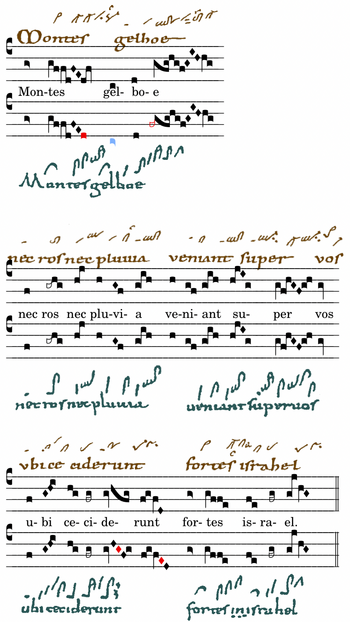 Montes gelboe
Mon-tes gel- bo- e
Montes gelboe
nec ros nec pluuia veniant super vos
nec ros nec plu-vi- a ve-ni- ant su- per vos
nec ros nec pluuia ueniant super uos
vbi ceciderunt fortes israhel
u- bi ce- ci- de- runt for- tes is- ra- el.
ubi ceciderunt fortes israhel